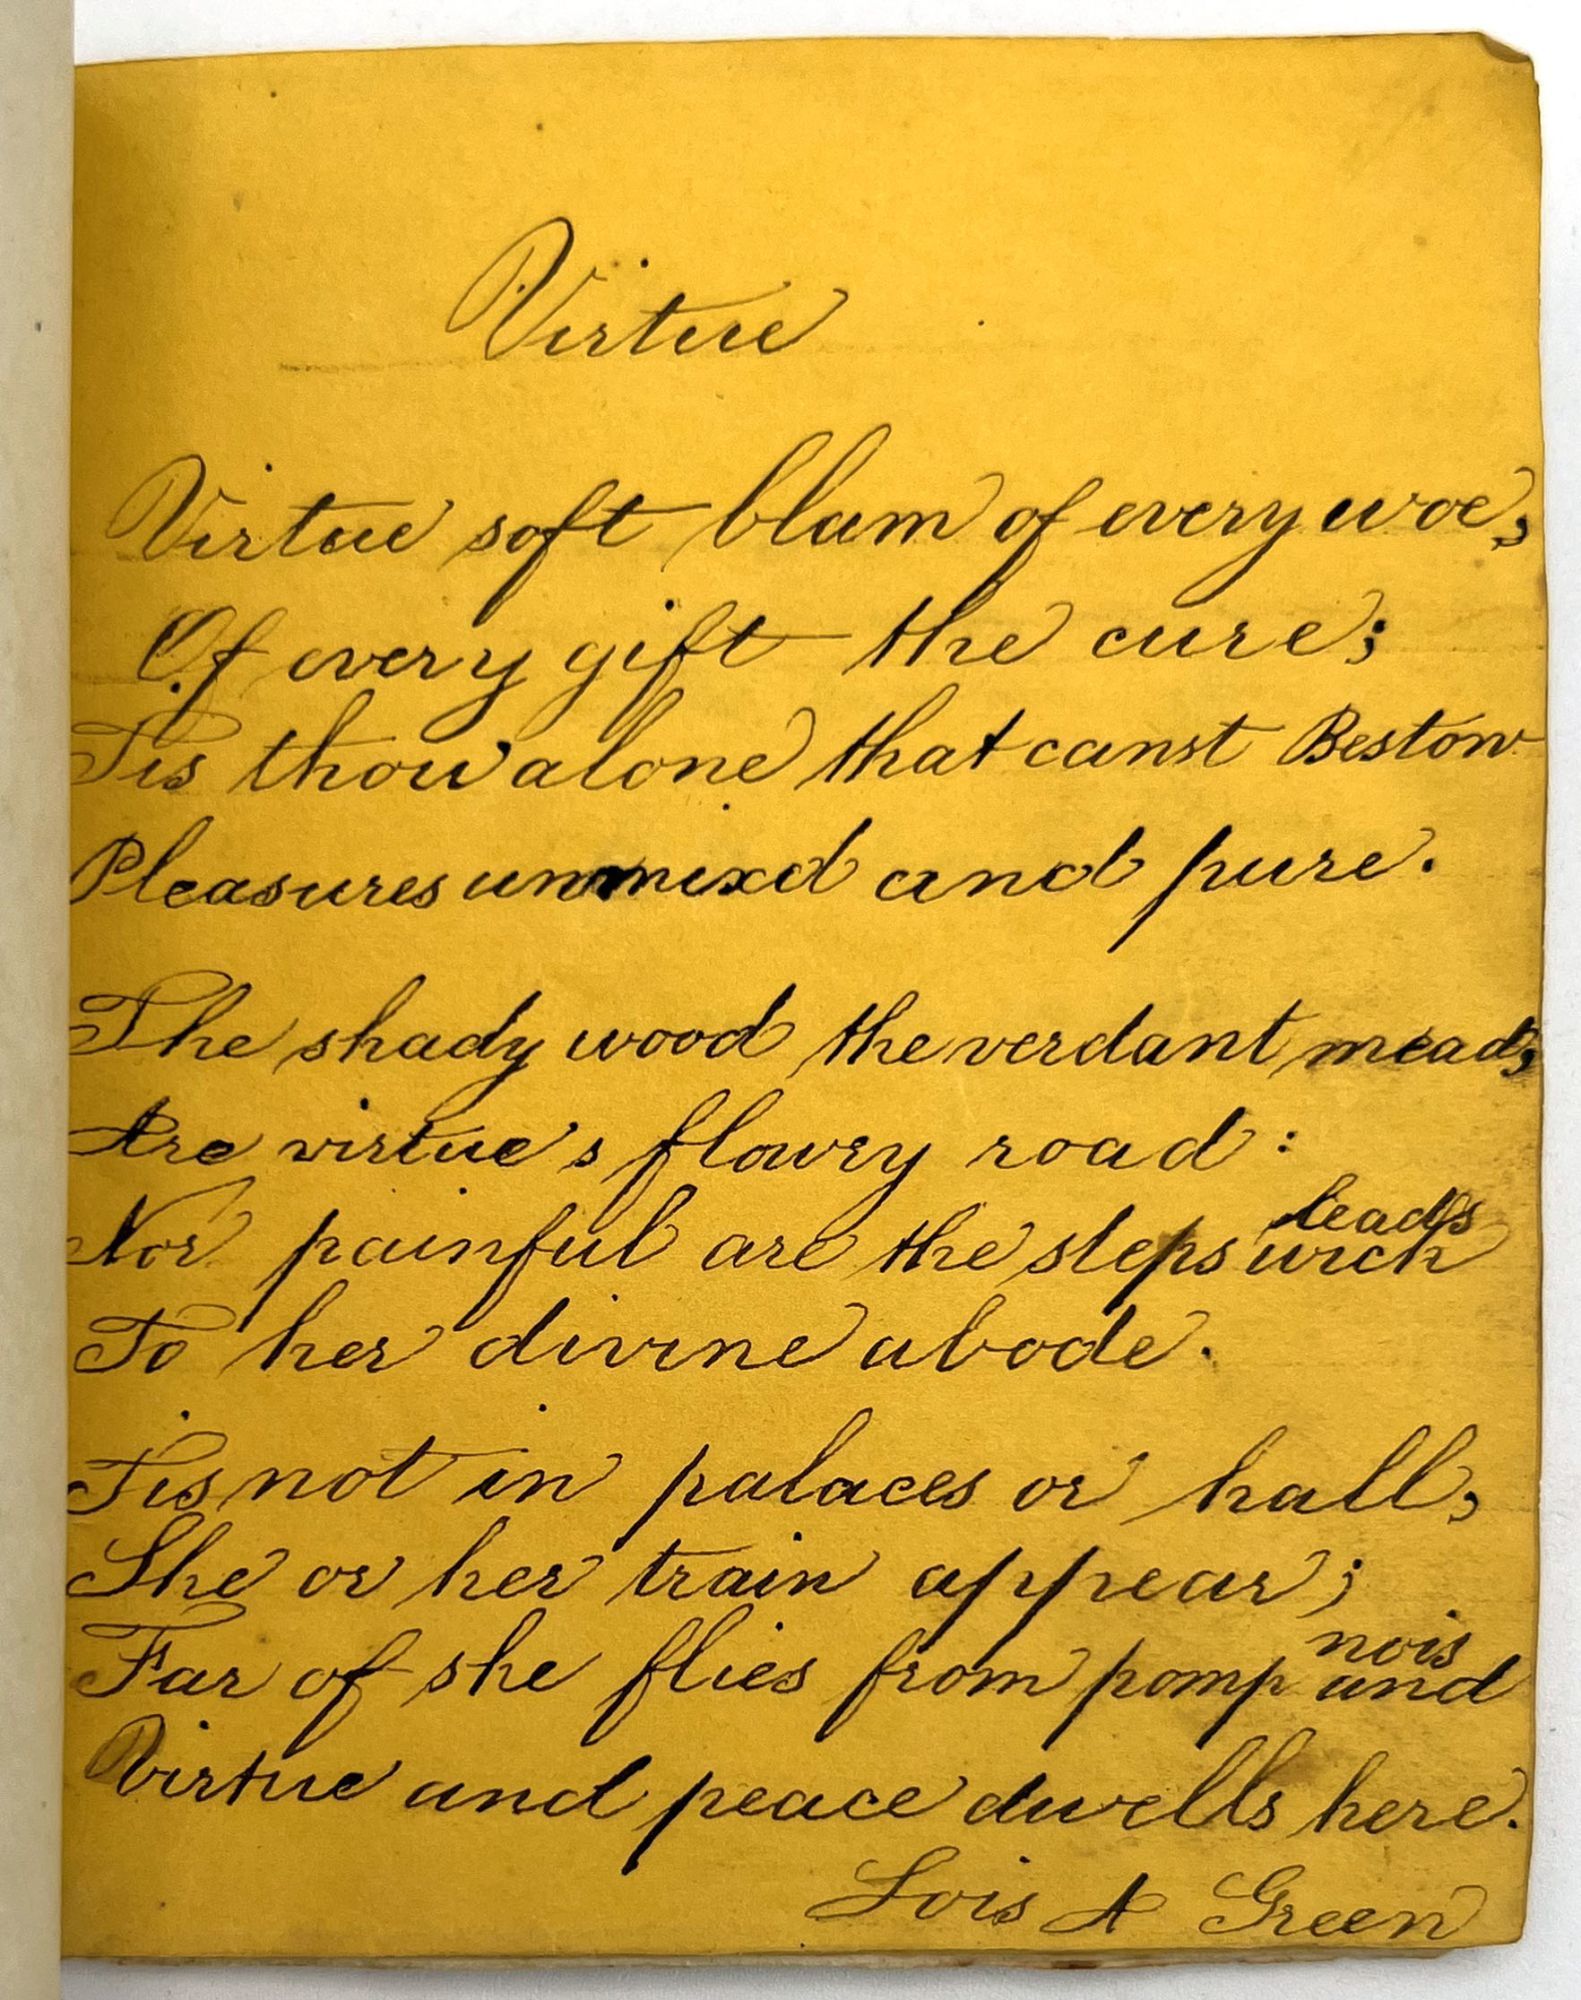 Virtue
Virtue soft blam of every woe,
Of every gift the cure;
Tis thou alone that canst Bestow
Pleasures unmixd and pure.
The shady wood the verdant mead,
Are virtue's flowry road:
Nor painful are the steps wich leads
To her divine abode.
Tis not in palaces or hall,
She or her train appear;
Far of she flies from pomp and nois
Virtue and peace dwells here.
Lois A Green